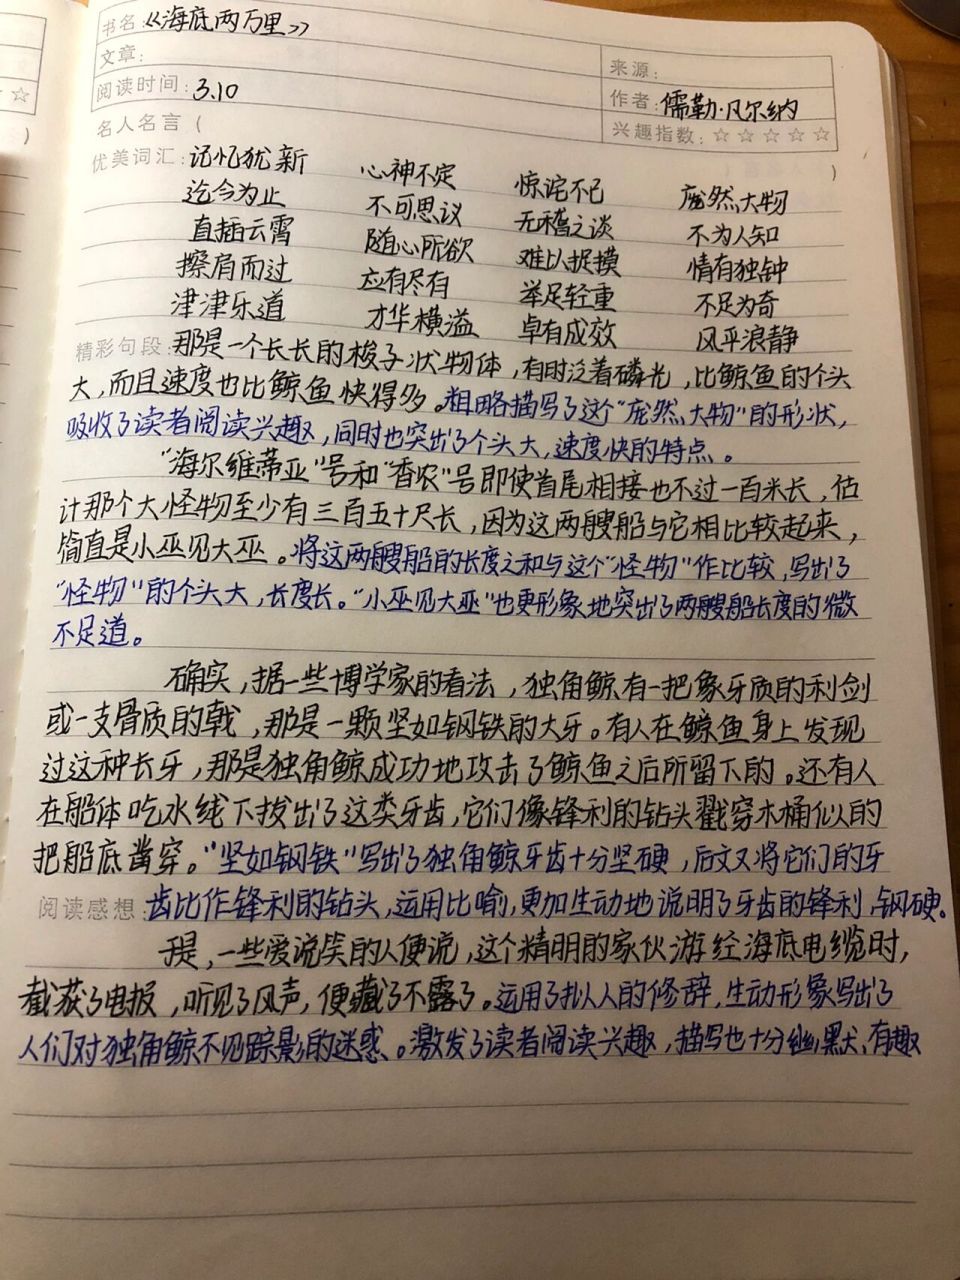 书名：《海底两万里》
文章：
来源：
阅读时间：3.10
作者：儒勒·凡尔纳
名人名言（
兴趣指数：☆☆☆☆☆
）
优美词汇：记忆犹新 心神不定 惊诧不已 庞然大物
迄今为止 不可思议 无稽之谈 不为人知
直插云霄 随心所欲 难以捉摸 情有独钟
擦肩而过 应有尽有 举足轻重 不足为奇
津津乐道 才华横溢 卓有成效 风平浪静
精彩句段：那是一个长长的梭子状物体，有时泛着磷光，比鲸鱼的个头
大，而且速度也比鲸鱼快得多。粗略描写了这个“庞然大物”的形状，
吸收了读者阅读兴趣，同时也突出了个头大，速度快的特点。
“海尔维蒂亚”号和“香农”号即使首尾相接也不过一百米长，估
计那个大怪物至少有三百五十尺长，因为这两艘船与它相比较起来，
简直是小巫见大巫。将这两艘船的长度之和与这个“怪物”作比较，写出了
“怪物”的个头大，长度长。“小巫见大巫”也更形象地突出了两艘船长度的微
不足道。
确实，据一些博学家的看法，独角鲸有一把象牙质的利剑
或一支骨质的戟，那是一颗坚如钢铁的大牙。有人在鲸鱼身上发现
过这种长牙，那是独角鲸成功地攻击了鲸鱼之后所留下的。还有人
在船体吃水线下拔出了这类牙齿，它们像锋利的钻头戳穿木桶似的
把船底凿穿。“坚如钢铁”写出了独角鲸牙齿十分坚硬，后文又将它们的牙
阅读感想：齿比作锋利的钻头，运用比喻，更加生动地说明了牙齿的锋利、钢硬。
于是，一些爱说笑的人便说，这个精明的家伙游经海底电缆时，
截获了电报，听见了风声，便藏了不露了。运用了拟人的修辞，生动形象写出了
人们对独角鲸不见踪影的迷惑。激发了读者阅读兴趣，描写也十分幽默、有趣